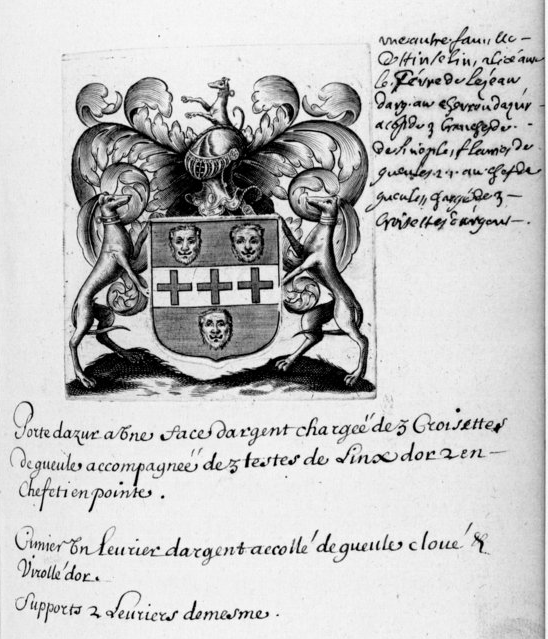 une autre famille
d'hinselin, aliée aux
le févre de lezeau
darg. au chevron dazur
acosté de 3
de sinople, de
gueules 2. 1. au chef de
gueules, chargé de 3
Croisettes dargent.
Porte dazur a Une face dargent chargeé de 3 Croisettes
de gueule accompagneé de 3 testes de Linx dor 2 en
chef et 1 en pointe.
Cimier Un Leurier dargent accollé de gueule cloué &
Virollé dor.
Supports 2 Leuriers de mesme.